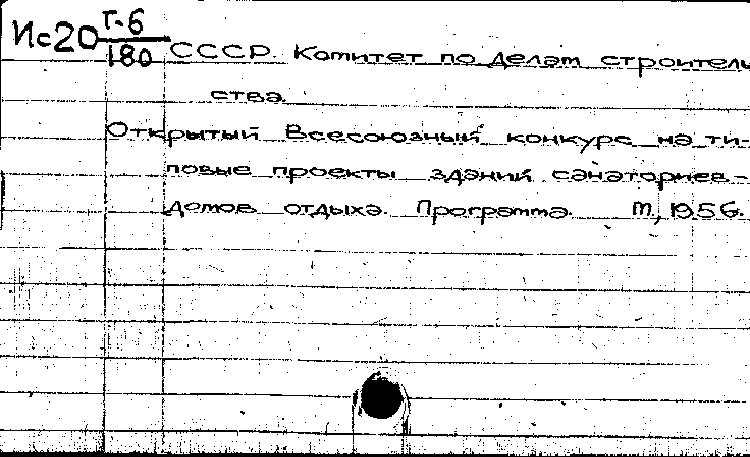 Ис20 Г-6/180 СССР. Комитет по делам строитель
ства.
Открытый Всесоюзный конкурс на ти-
повые проекты зданий санаториев-
домов отдыха. Программа. М., 1956.